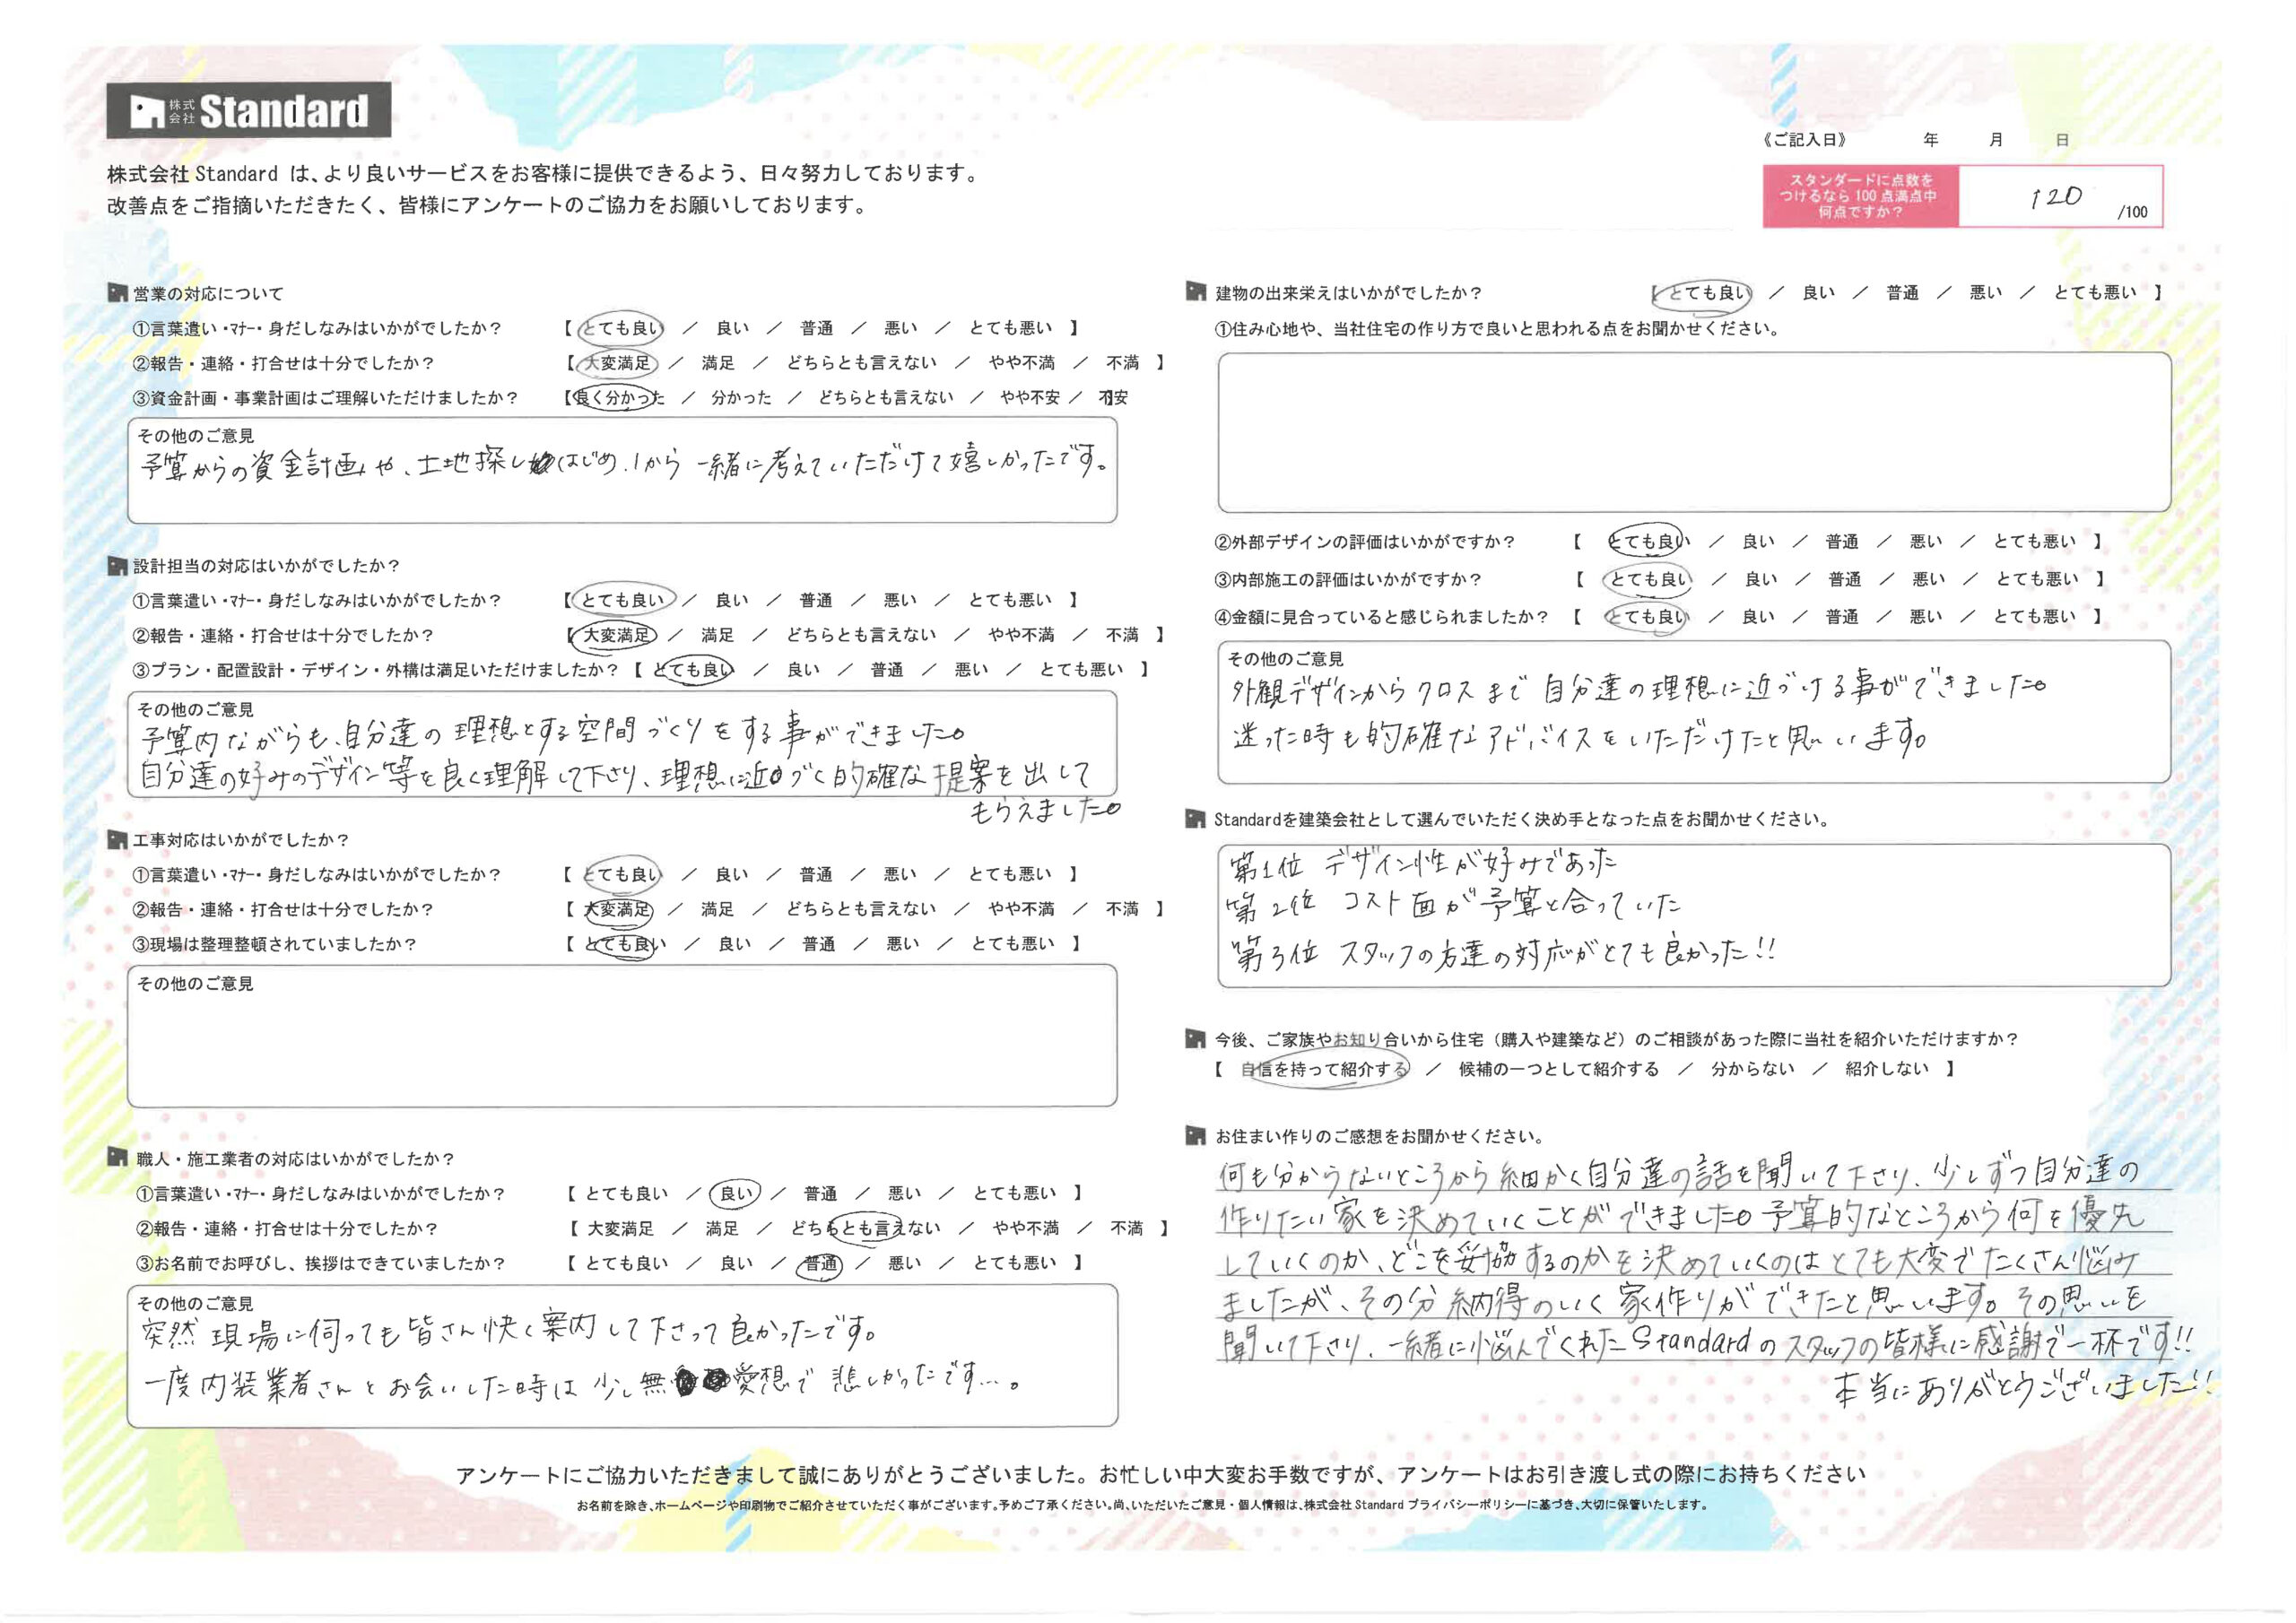 株式会社 Standard
株式会社 Standard は、より良いサービスをお客様に提供できるよう、日々努力しております。
改善点をご指摘いただきたく、皆様にアンケートのご協力をお願いしております。
《ご記入日》 年 月 日
スタンダードに点数を
つけるなら 100 点満点中
何点ですか?
120 /100
営業の対応について
①言葉遣い・マナー・身だしなみはいかがでしたか? 【 とても良い / 良い / 普通 / 悪い / とても悪い 】
②報告・連絡・打合せは十分でしたか? 【 大変満足 / 満足 / どちらとも言えない / やや不満 / 不満 】
③資金計画・事業計画はご理解いただけましたか? 【良く分かった / 分かった / どちらとも言えない / やや不安 / 不安】
その他のご意見
予算からの資金計画や、土地探しはじめ、1から一緒に考えていただけて嬉しかったです。
設計担当の対応はいかがでしたか?
①言葉遣い・マナー・身だしなみはいかがでしたか? 【 とても良い / 良い / 普通 / 悪い / とても悪い 】
②報告・連絡・打合せは十分でしたか? 【 大変満足 / 満足 / どちらとも言えない / やや不満 / 不満 】
③プラン・配置設計・デザイン・外構は満足いただけましたか?【 とても良い / 良い / 普通 / 悪い / とても悪い 】
その他のご意見
予算内ながらも、自分達の理想とする空間づくりをする事ができました。
自分達の好みのデザイン等を良く理解して下さり、理想に近づく的確な提案を出して
もらえました。
工事対応はいかがでしたか?
①言葉遣い・マナー・身だしなみはいかがでしたか? 【 とても良い / 良い / 普通 / 悪い / とても悪い 】
②報告・連絡・打合せは十分でしたか? 【 大変満足 / 満足 / どちらとも言えない / やや不満 / 不満 】
③現場は整理整頓されていましたか? 【 とても良い / 良い / 普通 / 悪い / とても悪い 】
その他のご意見
職人・施工業者の対応はいかがでしたか?
①言葉遣い・マナー・身だしなみはいかがでしたか? 【 とても良い / 良い / 普通 / 悪い / とても悪い 】
②報告・連絡・打合せは十分でしたか? 【 大変満足 / 満足 / どちらとも言えない / やや不満 / 不満 】
③お名前でお呼びし、挨拶はできていましたか? 【 とても良い / 良い / 普通 / 悪い / とても悪い 】
その他のご意見
突然現場に伺っても皆さん快く案内して下さって良かったです。
一度内装業者さんとお会いした時は少し無愛想で悲しかったです…。
建物の出来栄えはいかがでしたか? 【 とても良い / 良い / 普通 / 悪い / とても悪い 】
①住み心地や、当社住宅の作り方で良いと思われる点をお聞かせください。
②外部デザインの評価はいかがですか? 【 とても良い / 良い / 普通 / 悪い / とても悪い 】
③内部施工の評価はいかがですか? 【 とても良い / 良い / 普通 / 悪い / とても悪い 】
④金額に見合っていると感じられましたか? 【 とても良い / 良い / 普通 / 悪い / とても悪い 】
その他のご意見
外観デザインからクロスまで自分達の理想に近づける事ができました。
迷った時も的確なアドバイスをいただけたと思います。
Standardを建築会社として選んでいただく決め手となった点をお聞かせください。
第1位 デザイン性が好みであった
第2位 コスト面が予算と合っていた
第3位 スタッフの方達の対応がとても良かった!!
今後、ご家族やお知り合いから住宅(購入や建築など)のご相談があった際に当社を紹介いただけますか?
【 自信を持って紹介する / 候補の一つとして紹介する / 分からない / 紹介しない 】
お住まい作りのご感想をお聞かせください。
何も分からないところから細かく自分達の話を聞いて下さり、少しずつ自分達の
作りたい家を決めていくことができました。予算的なところから何を優先
していくのか、どこを妥協するのかを決めていくのはとても大変でたくさん悩み
ましたが、その分納得のいく家作りができたと思います。その思いを
聞いて下さり、一緒に悩んでくれたStandardのスタッフの皆様に感謝で一杯です!!
本当にありがとうございました!!
アンケートにご協力いただきまして誠にありがとうございました。お忙しい中大変お手数ですが、アンケートはお引き渡し式の際にお持ちください
お名前を除き、ホームページや印刷物でご紹介させていただく事がございます。予めご了承ください。尚、いただいたご意見・個人情報は、株式会社 Standard プライバシーポリシーに基づき、大切に保管いたします。